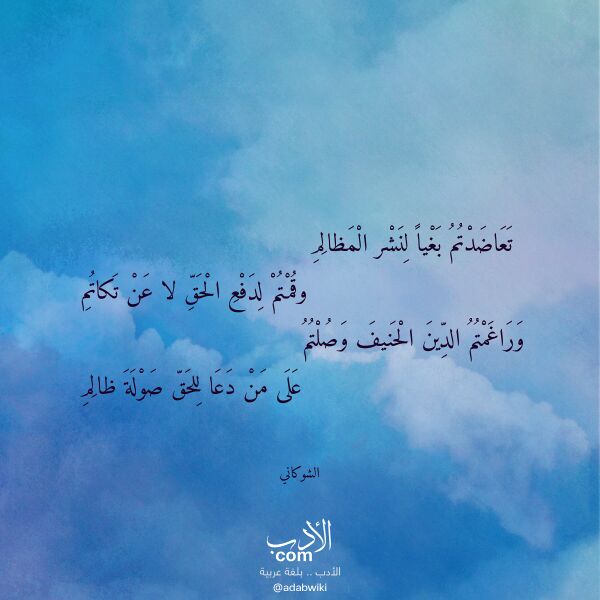 تَعَاضَدْتُمُ بَغْياً لِنَشْر الْمَظالِمِ
وقُمْتُمْ لِدَفْعِ الْحَقِّ لا عَنْ تَكاتُمِ
وَرَاغَمْتُمُ الدِّينَ الْحَنيفَ وَصُلْتُمُ
عَلَى مَنْ دَعَا لِلحَقّ صَوْلَةَ ظالِمِ
الشوكاني
الأدب
com
الأدب .. بلغة عربية
@adabwiki